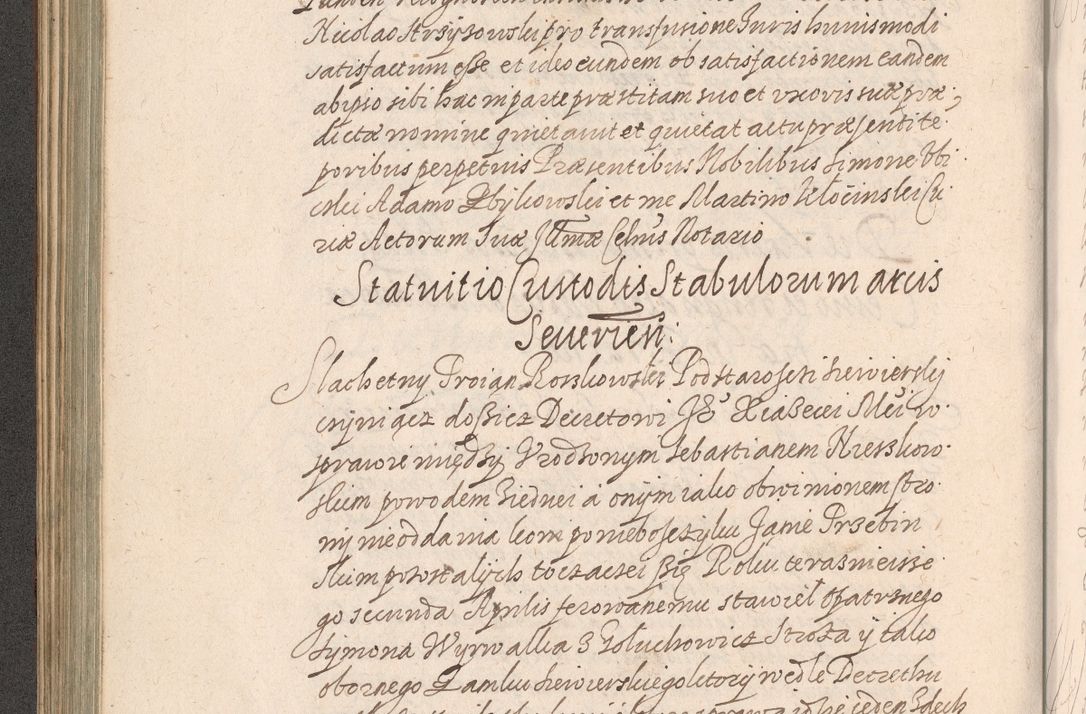 Nicolao Strzyzowski pro transfusione Iuris huiusmodi
satisfactum esse et ideo eundem ob satisfactionem eandem
ab ipso sibi hac in parte præstitam suo et vxoris suæ præ
dictæ nomine quietauit et quietat actu præsenti te
poribus perpetuis Præsentibus Nobilibus Simone Ubi
cski Adamo Zbykowski et me Martino Kłocinski Cu
riæ Actorum Suæ Illmæ Celnis Notario
Statuitio Custodis Stabulorum arcis
Seuerien:
Slachetny Troian Rosskowski Podstarosczi Siewierskÿ
cznÿniącz dossicz Decretowi Jº Xiazecei Mci w
prawie międzÿ Urodzonym Sebastianem Kiersskow
skim powodem ziednei a onÿm iako obwinionem stro
nÿ nieoddania koni po nieboszczyku Janie Trzebin
skim pozostalÿch toczaczei się Roku terasnieisze
go secunda Aprilis ferowanemu stawiel Opatrznego
Szymona Wyrwalka z Goluchowicz Stroza ÿ tako
oboznego Zamku Siewierskiego ktorÿ wedle Decrethu